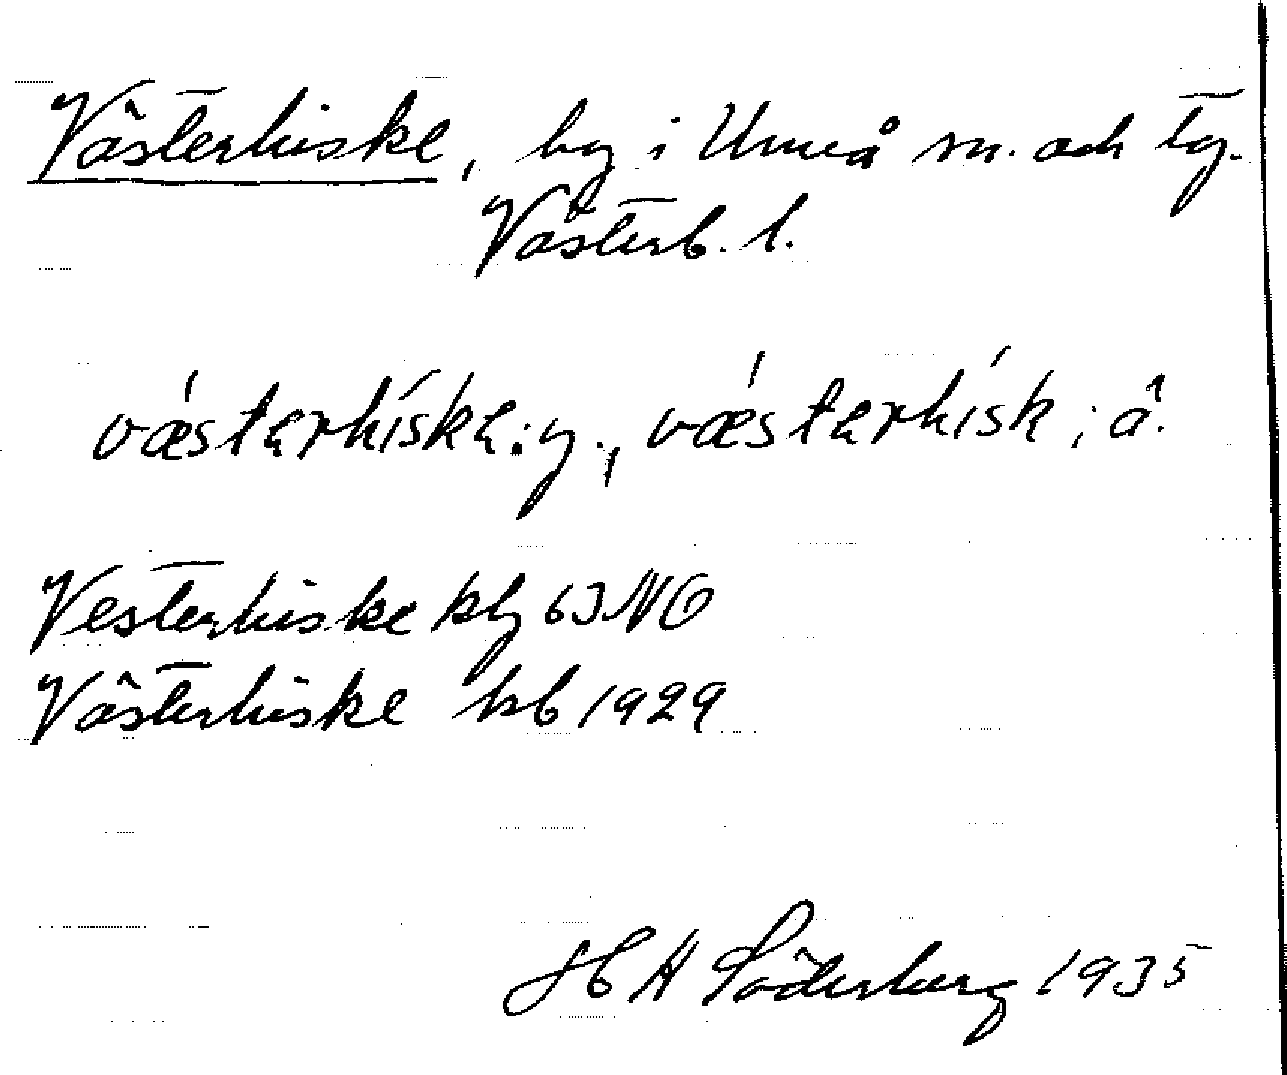 Västerhiske, by i Umeå sn. och tg.
Västerb. l.
vǽstɐrhískɐ: y., vǽstɐrhísk ; â.
Vesterhiske kbl 63 NO
Västerhiske kb 1929
H A Söderberg 1935